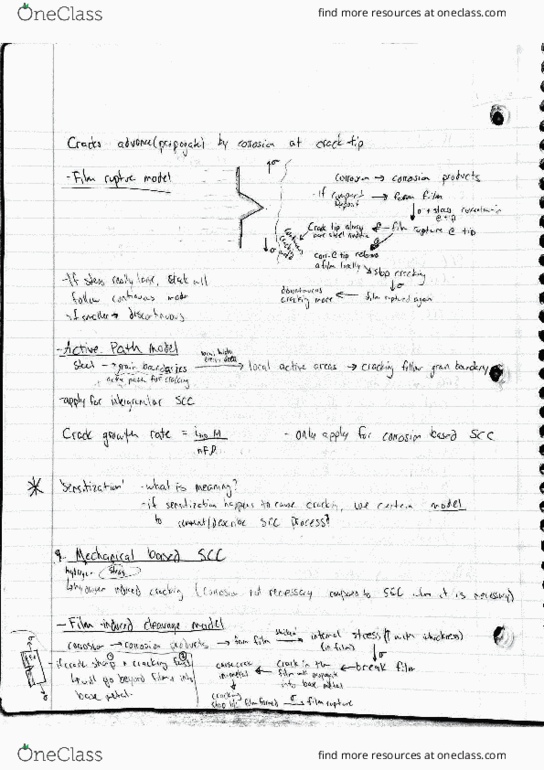 OneClass
find more resources at oneclass.com
Cracks advance (propagate) by corrosion at crack tip
- Film rupture model
σ
corrosion → corrosion products
- if compact deposit → form film
↓ σ + stress concentration @ tip
Crack tip always ← film rupture @ tip
corr. @ tip reforms
a film locally → stop cracking
↓ σ
discontinuous
cracking mode ← film ruptured again
- If stress really large, steel will
follow continuous mode
- if smaller → discontinuous
- Active Path model
Steel → grain boundaries → local active areas → cracking follow grain boundary
active path for cracking
- apply for intergranular SCC
Crack growth rate = M
nFρ
- only apply for corrosion based SCC
* 'Sensitization' - what is meaning?
- if sensitization happens to cause cracking, use certain model
to describe SCC process?
Mechanical based SCC
hydrogen stress
hydrogen induced cracking (corrosion not necessary compared to SCC when it is necessary)
- Film induced cleavage model
corrosion → corrosion products → form film → internal stress (↑ with thickness)
(in film)
↓ σ
break film
crack in the
film will propagate
into base metal
cause crack
in metal
- if crack sharp & cracking fast
will go beyond film & into
base metal.
cracking
stop b/c film formed → film rupture
OneClass
find more resources at oneclass.com